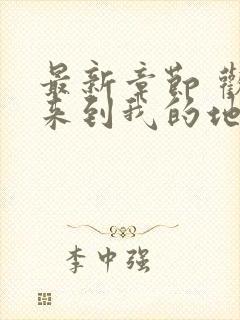 最新章節 歡
来到我的地
李中强